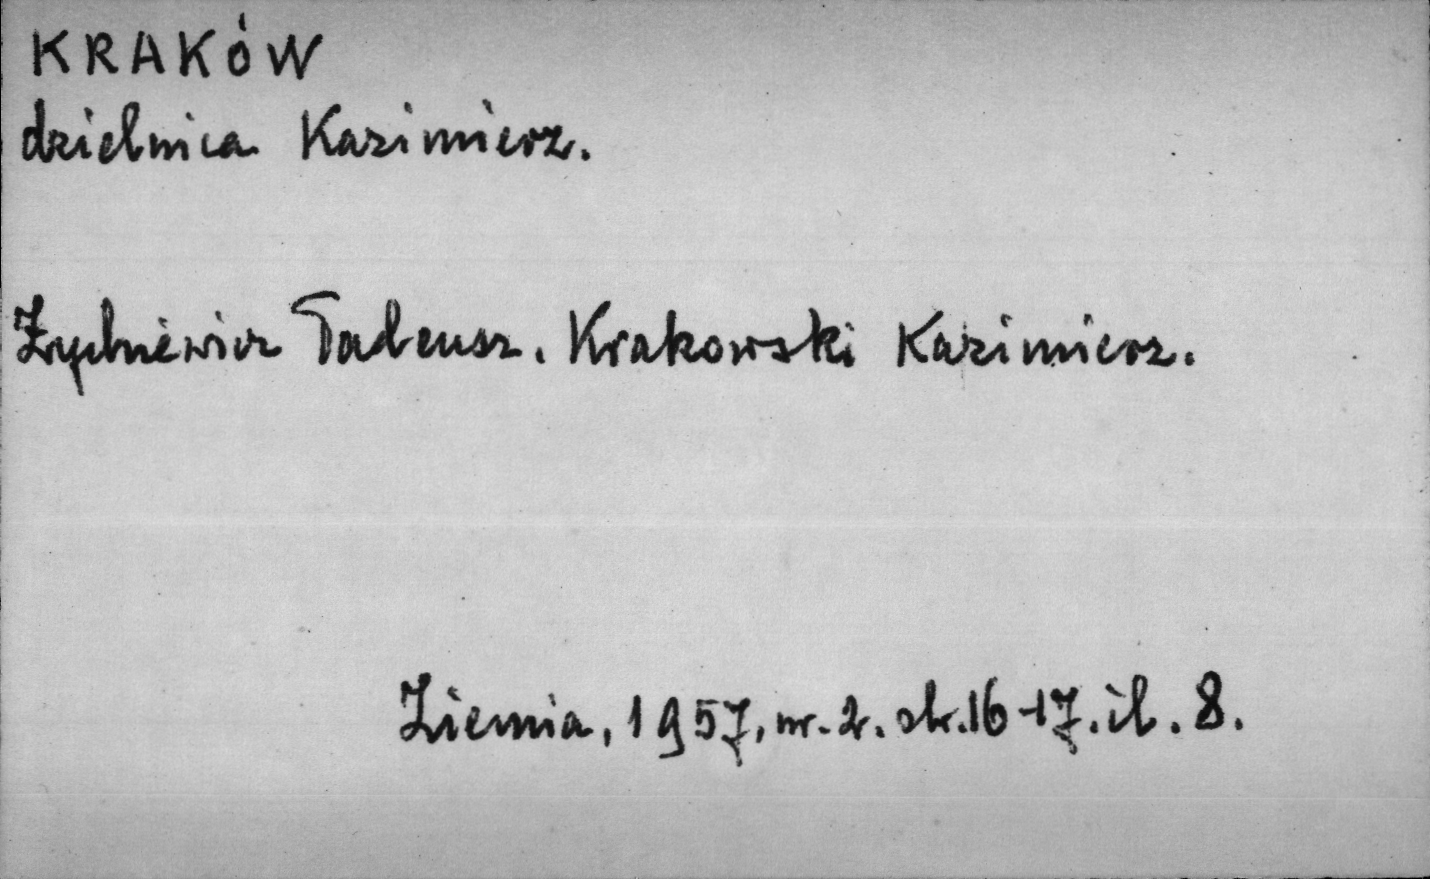 KRAKÓW
dzielnica Kazimierz.
Żychiewicz Tadeusz. Krakowski Kazimierz.
Ziemia, 1957, nr. 2. str. 16-17. il. 8.